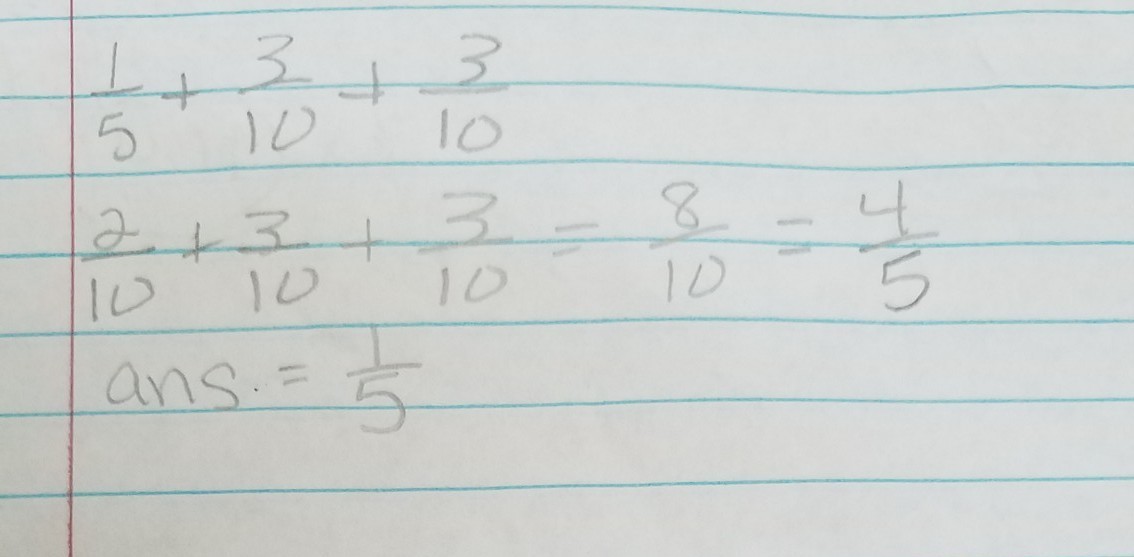 1/5 + 3/10 + 3/10
2/10 + 3/10 + 3/10 = 8/10 = 4/5
ans. = 1/5